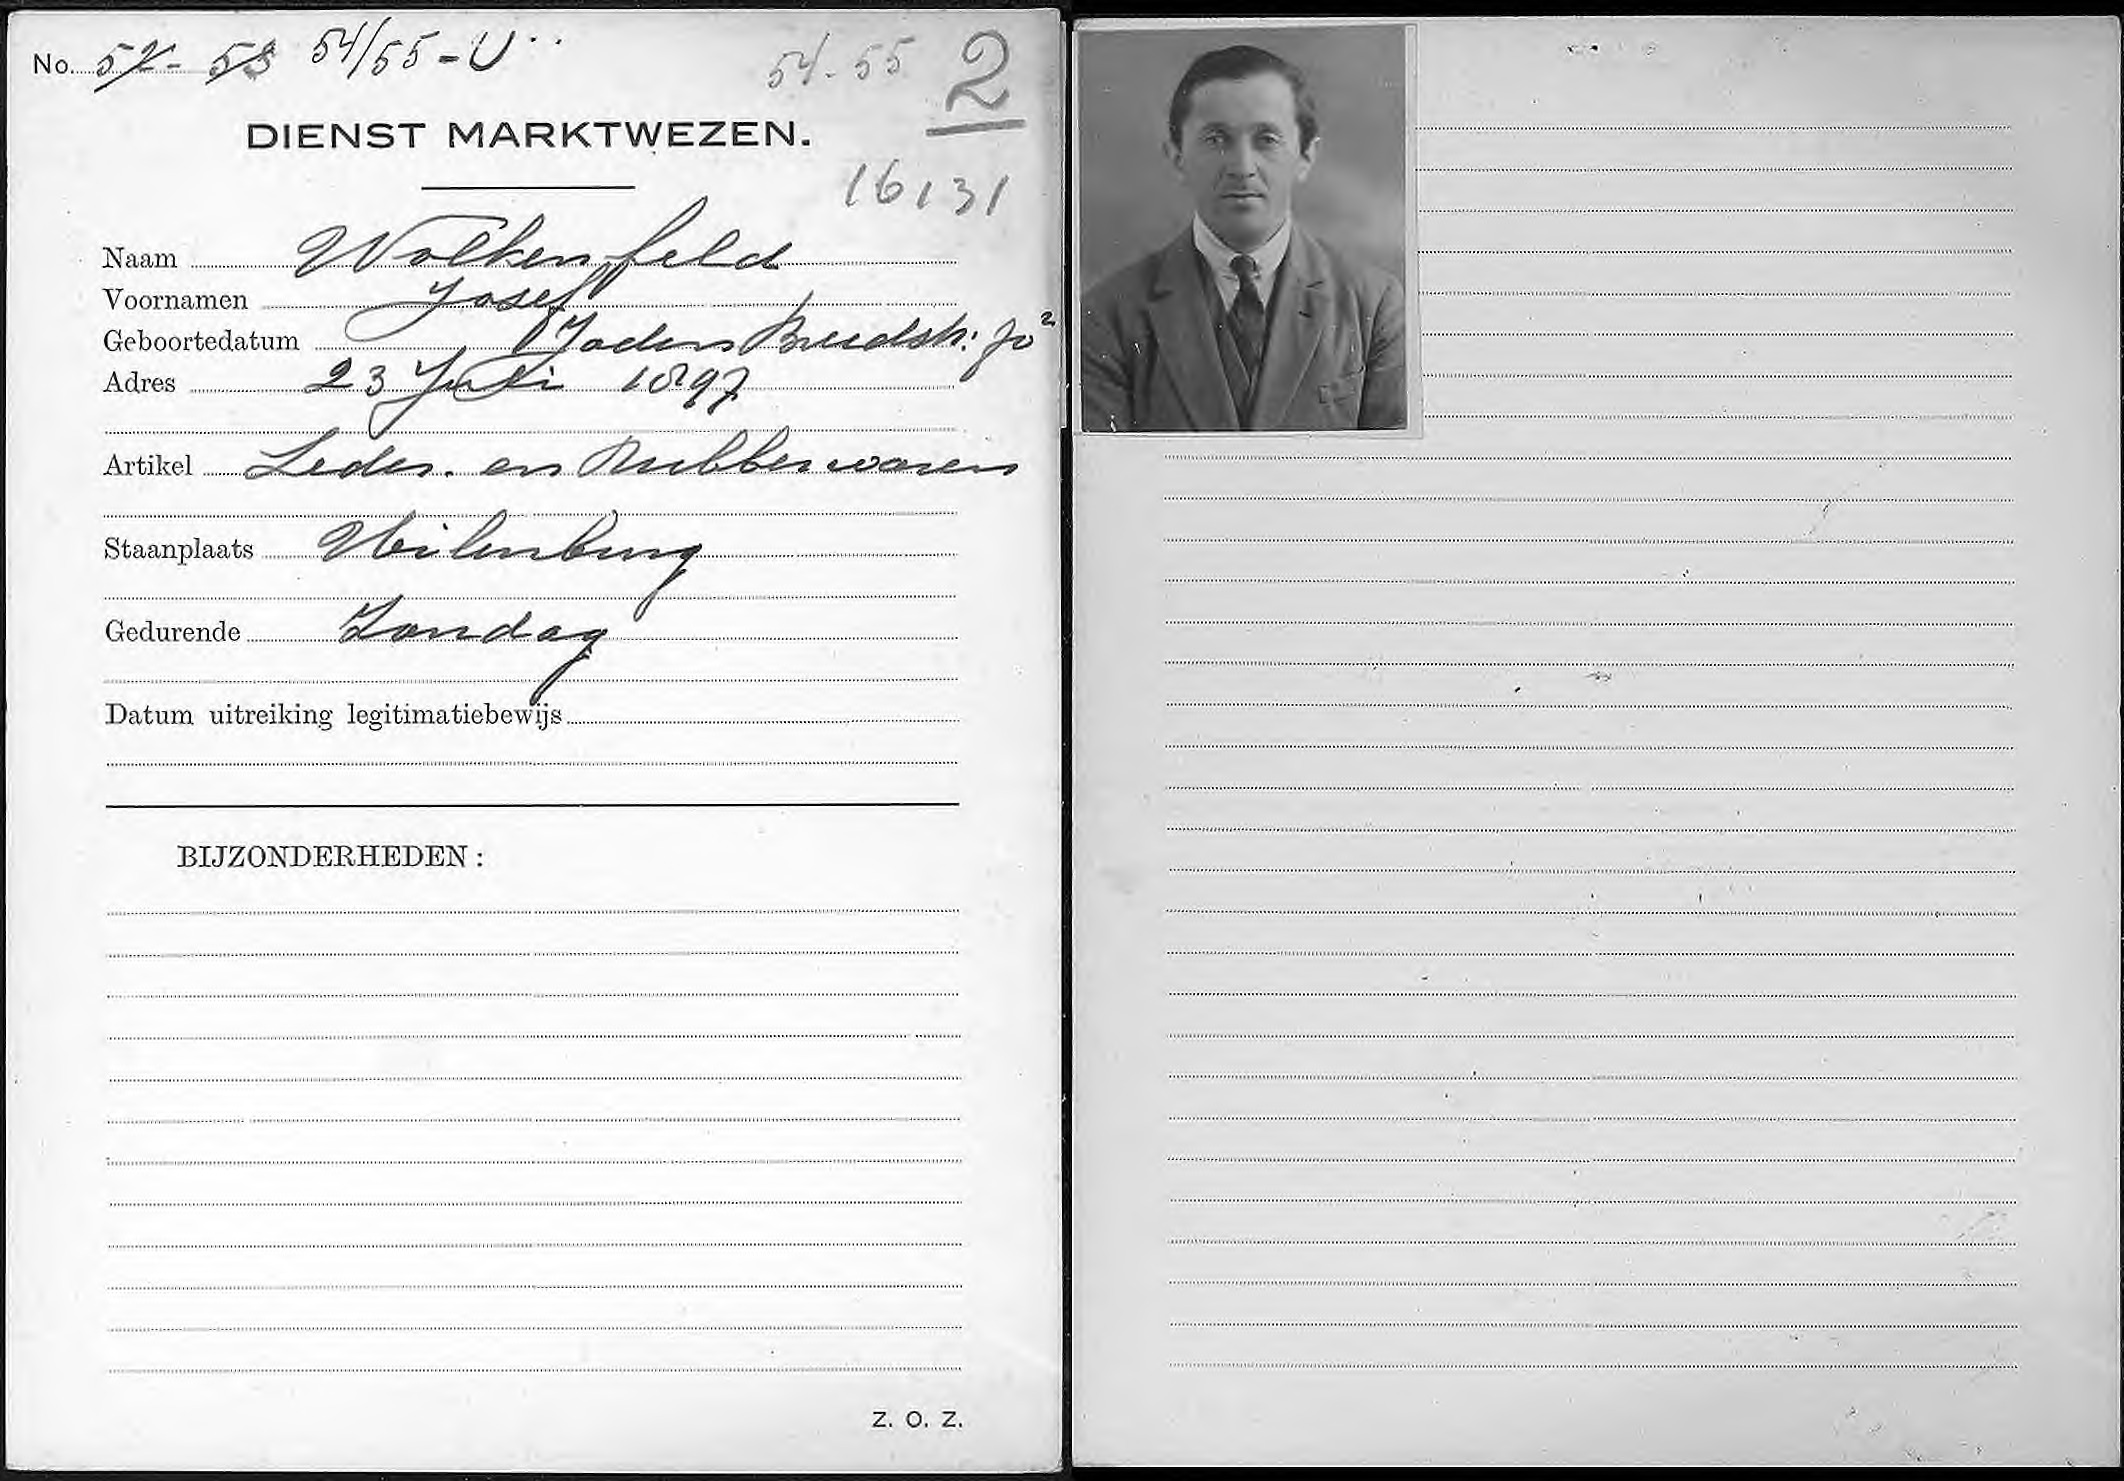 No. 52 - 53 54/55 - U
54-55 2
DIENST MARKTWEZEN.
16131
Naam Wolkenfeld
Voornamen Josef
Geboortedatum Joden Breedstr. 70²
Adres 23 Juli 1897
Artikel Leder. en Rubberwaren
Staanplaats Uilenburg
Gedurende Zondag
Datum uitreiking legitimatiebewijs
BIJZONDERHEDEN :
Z. O. Z.